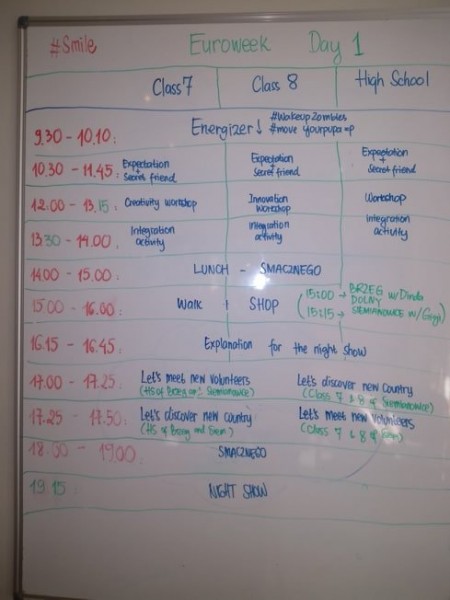 #Smile Euroweek Day 1
Class 7 Class 8 High School
9.30 - 10.10: Energizer! #WakeupZombies
#move yourpupa =p
10.30 - 11.45: Expectation + Secret friend Expectation + Secret friend Expectation + Secret friend
12:00 - 13.15: Creativity workshop Innovation Workshop Workshop
13.30 - 14.00: Integration activity Integration activity Integration activity
14.00 - 15.00: LUNCH - SMACZNEGO
15.00 - 16.00: Walk + SHOP (15:00 → BRZEG DOLNY w/Dinda
15:15 → SIEMIANOWICE w/
16.15 - 16.45: Explanation for the night show
17.00 - 17.25: Let's meet new volunteers Let's discover new Country
(HS of Brzeg and Siemianowice) (Class 7 & 8 of Siemianowice)
17.25 - 17.50: Let's discover new country Let's meet new volunteers
(HS of Brzeg and Siem) (Class 7 & 8 of
18:00 - 19:00: SMACZNEGO
19.15: NIGHT SHOW